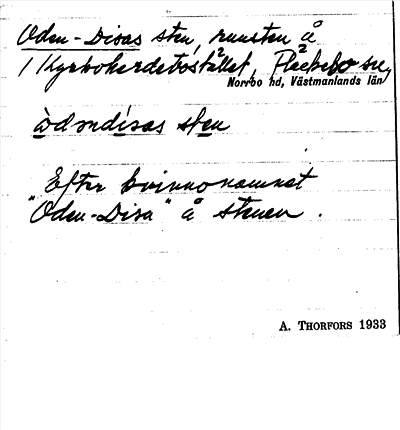 Oden-Disas sten, runsten å
1 Kyrkoherdebostället, Fläckebo sn,
Norrbo hd, Västmanlands län
òdəndísas sten
Efter kvinnonamnet
"Oden-Disa" å stenen.
A. THORFORS 1933